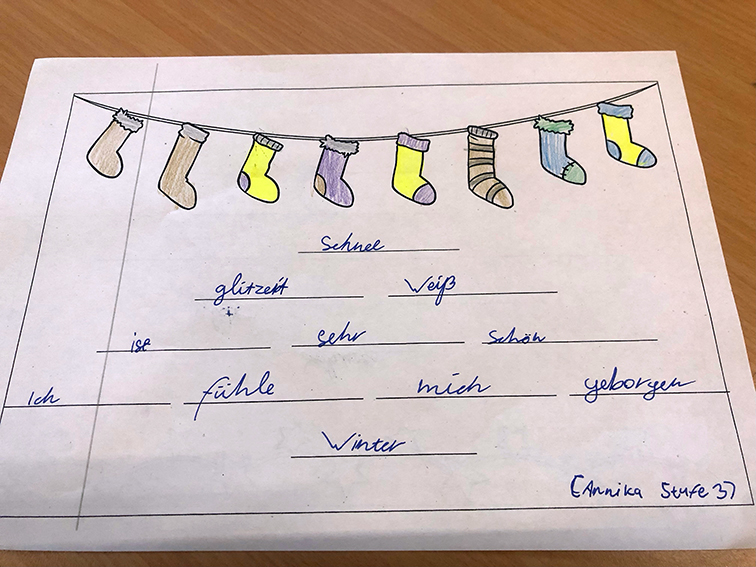 Schnee
glitzert Weiß
ist sehr Schön
Ich fühle mich geborgen
Winter
(Annika Stufe 3)